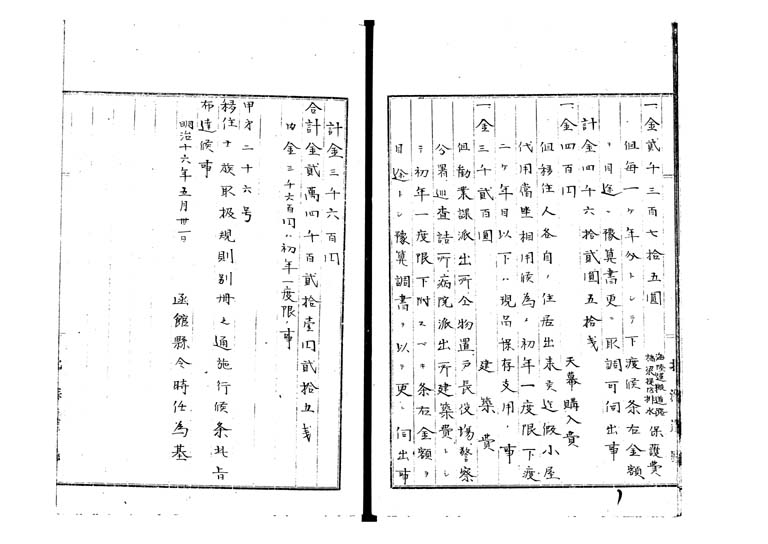 一金貳千三百七拾五圓
海陸運搬道路
橋梁堤防排水
保護費
但毎一ケ年分トシテ下渡候条右金額
ヲ目途ニ豫算書更ニ取調可伺出事
計金四千六拾貳圓五拾戋
一金四百円 天幕購入費
但移住人各自ノ住居出来支迄假小屋
代用当坐相用候為ノ初年一度限下渡
二ケ年目以下ハ現品保存支用ノ事
一金三千貳百圓 建築費
但勧業課派出所仝物置戸長役場警察
分署巡査詰所病院派出所建築費トシ
テ初年一度限下附スヘキ条右金額ヲ
目途トシ豫算調書ヲ以テ更ニ伺出事
計金三千六百円
合計金貳萬四千百貳拾壹円貳拾五戋
内金三千六百円ハ初年一度限ノ事
甲才二十六号
移住士族取扱規則別冊之通施行候条此旨
布達候事
明治十六年五月卅一日 函館縣令時任為基